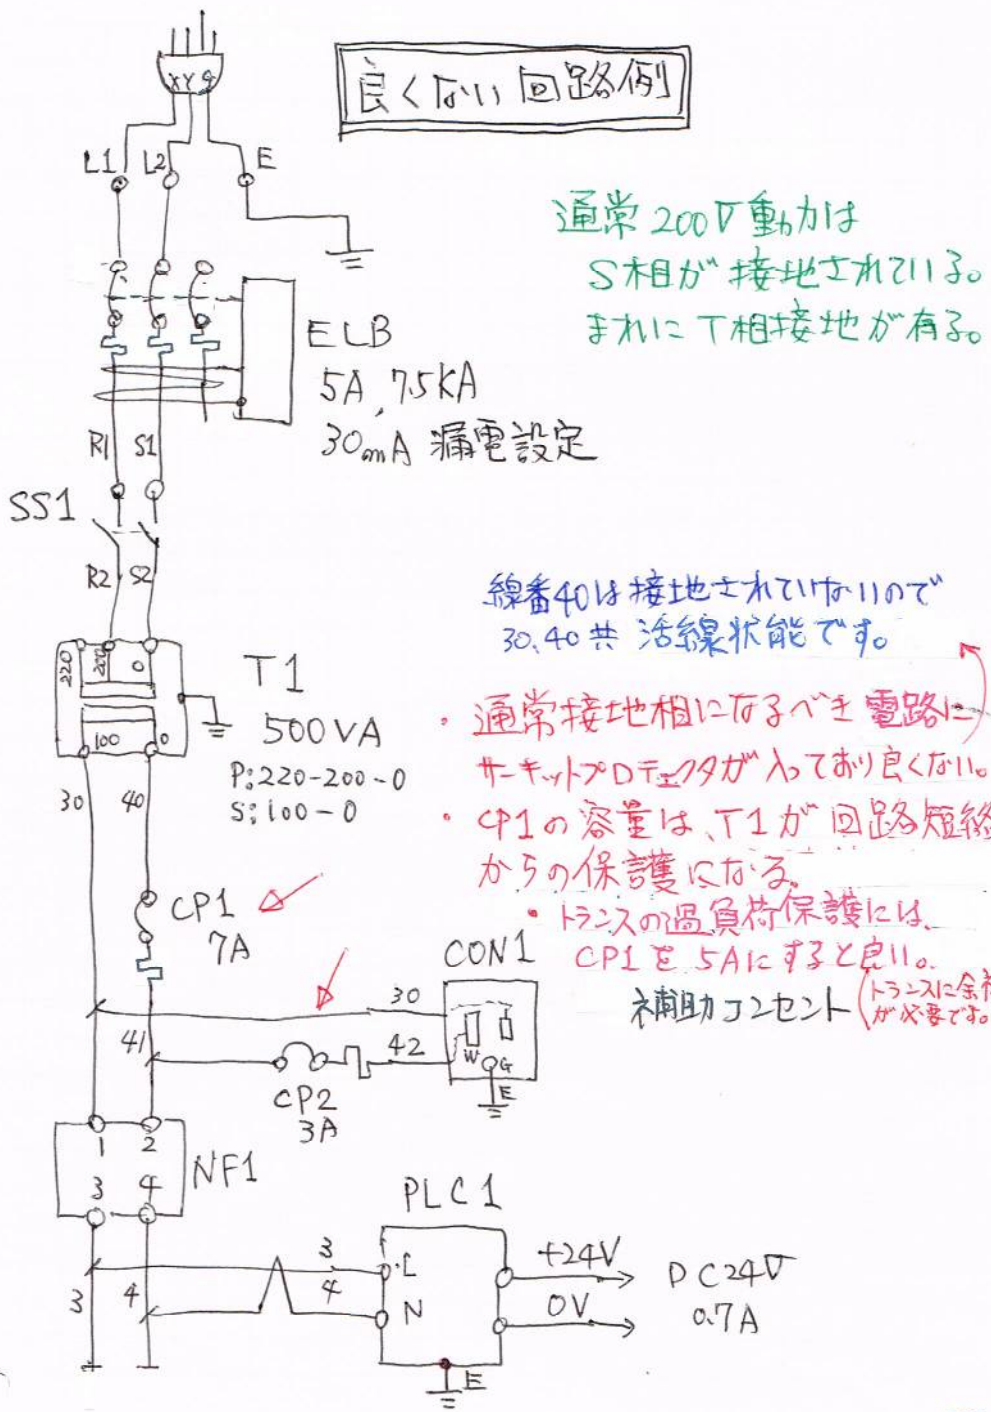 良くない回路例
X Y G
L1 L2 E
通常200V動力は
S相が接地されている。
まれにT相接地が有る。
ELB
5A, 7.5KA
30mA 漏電設定
R1 S1
SS1
R2 S2
線番40は接地されていないので
30.40共 活線状能です。
220 200 0
T1
100 0
500VA
P:220-200-0
S:100-0
・通常接地相になるべき電路に
サーキットプロテェクタが入っており良くない。
30 40
・CP1の容量は、T1が回路短絡
からの保護になる。
・トランスの過負荷保護には、
CP1を5Aにすると良い。
CP1
7A
CON1
補助コンセント
(トランスに余裕
が必要です。
30
41
42
W G
E
CP2
3A
1 2
NF1
3 4
PLC1
3 L
4 N
+24V
0V
DC24V
0.7A
3 4
E